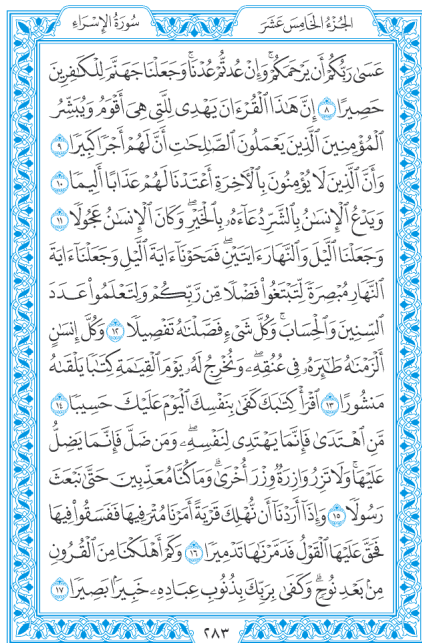 سُورَةُ الإِسْرَاءِ
الجُزْءُ الخَامِسَ عَشَرَ
عَسَىٰ رَبُّكُمْ أَن يَرْحَمَكُمْ ۚ وَإِنْ عُدتُّمْ عُدْنَا ۘ وَجَعَلْنَا جَهَنَّمَ لِلْكَـٰفِرِينَ
حَصِيرًا ٨ إِنَّ هَـٰذَا ٱلْقُرْءَانَ يَهْدِى لِلَّتِى هِىَ أَقْوَمُ وَيُبَشِّرُ
ٱلْمُؤْمِنِينَ ٱلَّذِينَ يَعْمَلُونَ ٱلصَّـٰلِحَـٰتِ أَنَّ لَهُمْ أَجْرًا كَبِيرًا ٩
وَأَنَّ ٱلَّذِينَ لَا يُؤْمِنُونَ بِٱلْـَٔاخِرَةِ أَعْتَدْنَا لَهُمْ عَذَابًا أَلِيمًا ١٠
وَيَدْعُ ٱلْإِنسَـٰنُ بِٱلشَّرِّ دُعَآءَهُۥ بِٱلْخَيْرِ ۖ وَكَانَ ٱلْإِنسَـٰنُ عَجُولًا ١١
وَجَعَلْنَا ٱلَّيْلَ وَٱلنَّهَارَ ءَايَتَيْنِ ۖ فَمَحَوْنَآ ءَايَةَ ٱلَّيْلِ وَجَعَلْنَآ ءَايَةَ
ٱلنَّهَارِ مُبْصِرَةً لِّتَبْتَغُوا۟ فَضْلًا مِّن رَّبِّكُمْ وَلِتَعْلَمُوا۟ عَدَدَ
ٱلسِّنِينَ وَٱلْحِسَابَ ۚ وَكُلَّ شَىْءٍ فَصَّلْنَـٰهُ تَفْصِيلًا ١٢ وَكُلَّ إِنسَـٰنٍ
أَلْزَمْنَـٰهُ طَـٰٓئِرَهُۥ فِى عُنُقِهِۦ ۖ وَنُخْرِجُ لَهُۥ يَوْمَ ٱلْقِيَـٰمَةِ كِتَـٰبًا يَلْقَىٰهُ
مَنشُورًا ١٣ ٱقْرَأْ كِتَـٰبَكَ كَفَىٰ بِنَفْسِكَ ٱلْيَوْمَ عَلَيْكَ حَسِيبًا ١٤
مَّنِ ٱهْتَدَىٰ فَإِنَّمَا يَهْتَدِى لِنَفْسِهِۦ ۖ وَمَن ضَلَّ فَإِنَّمَا يَضِلُّ
عَلَيْهَا ۚ وَلَا تَزِرُ وَازِرَةٌ وِزْرَ أُخْرَىٰ ۗ وَمَا كُنَّا مُعَذِّبِينَ حَتَّىٰ نَبْعَثَ
رَسُولًا ١٥ وَإِذَآ أَرَدْنَآ أَن نُّهْلِكَ قَرْيَةً أَمَرْنَا مُتْرَفِيهَا فَفَسَقُوا۟ فِيهَا
فَحَقَّ عَلَيْهَا ٱلْقَوْلُ فَدَمَّرْنَـٰهَا تَدْمِيرًا ١٦ وَكَمْ أَهْلَكْنَا مِنَ ٱلْقُرُونِ
مِنۢ بَعْدِ نُوحٍ ۗ وَكَفَىٰ بِرَبِّكَ بِذُنُوبِ عِبَادِهِۦ خَبِيرًۢا بَصِيرًا ١٧
٢٨٣